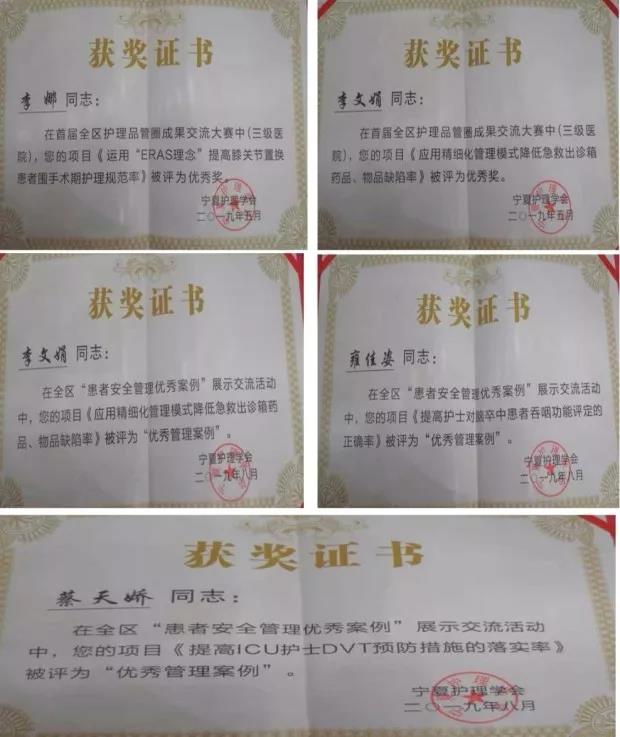 获奖证书
李娜 同志:
在首届全区护理品管圈成果交流大赛中(三级医
院),您的项目《运用“ERAS理念”提高膝关节置换
患者围手术期护理规范率》被评为优秀奖。
宁夏护理学会
二〇一九年五月
获奖证书
李文娟 同志:
在首届全区护理品管圈成果交流大赛中(三级医
院),您的项目《应用精细化管理模式降低急救出诊箱
药品、物品缺陷率》被评为优秀奖。
宁夏护理学会
二〇一九年五月
获奖证书
李文娟 同志:
在全区“患者安全管理优秀案例”展示交流活动
中,您的项目《应用精细化管理模式降低急救出诊箱药
品、物品缺陷率》被评为“优秀管理案例”。
宁夏护理学会
二〇一九年八月
获奖证书
雍佳姿 同志:
在全区“患者安全管理优秀案例”展示交流活动
中,您的项目《提高护士对脑卒中患者吞咽功能评定的
正确率》被评为“优秀管理案例”。
宁夏护理学会
二〇一九年八月
获奖证书
蔡天娇 同志:
在全区“患者安全管理优秀案例”展示交流活动
中,您的项目《提高ICU护士DVT预防措施的落实率》
被评为“优秀管理案例”。
宁夏护理学会
二〇一九年八月